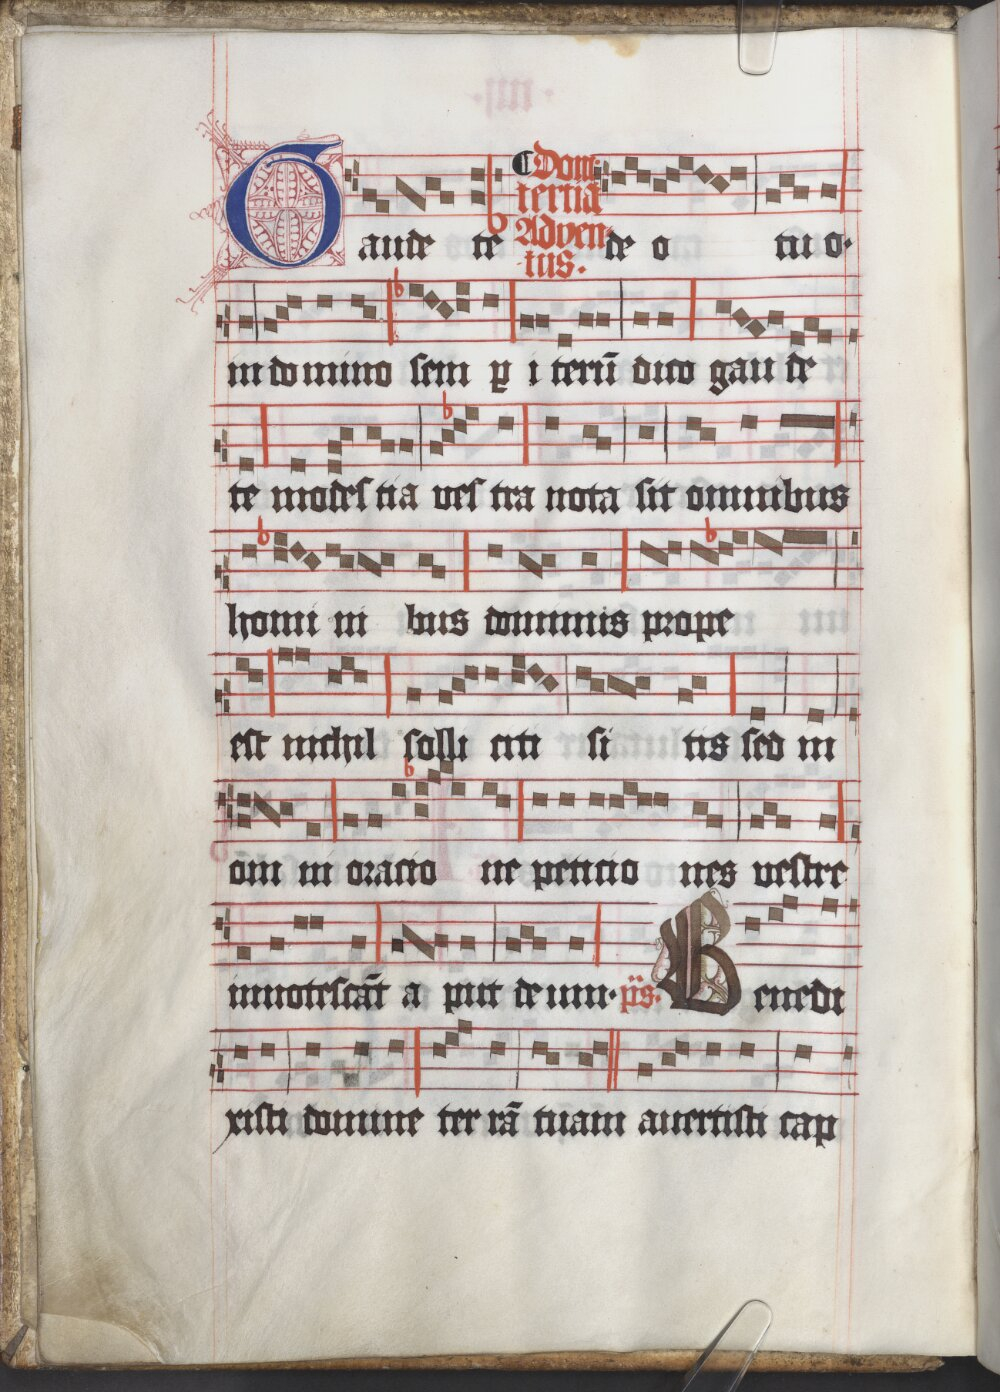 Gaude te
Dom̄
tertia
Adven
tus.
de o tuo.
in domino sem p̲ i terū dico gau de
te modes tia ves tra nota sit omnibus
homi ni bus dominus prope
est nichil solli citi si tis sed in
om ni oracio ne peticio nes vestre
innotescāt a put deum. ps. Benedi
xisti domine ter rā tuam avertisti cap